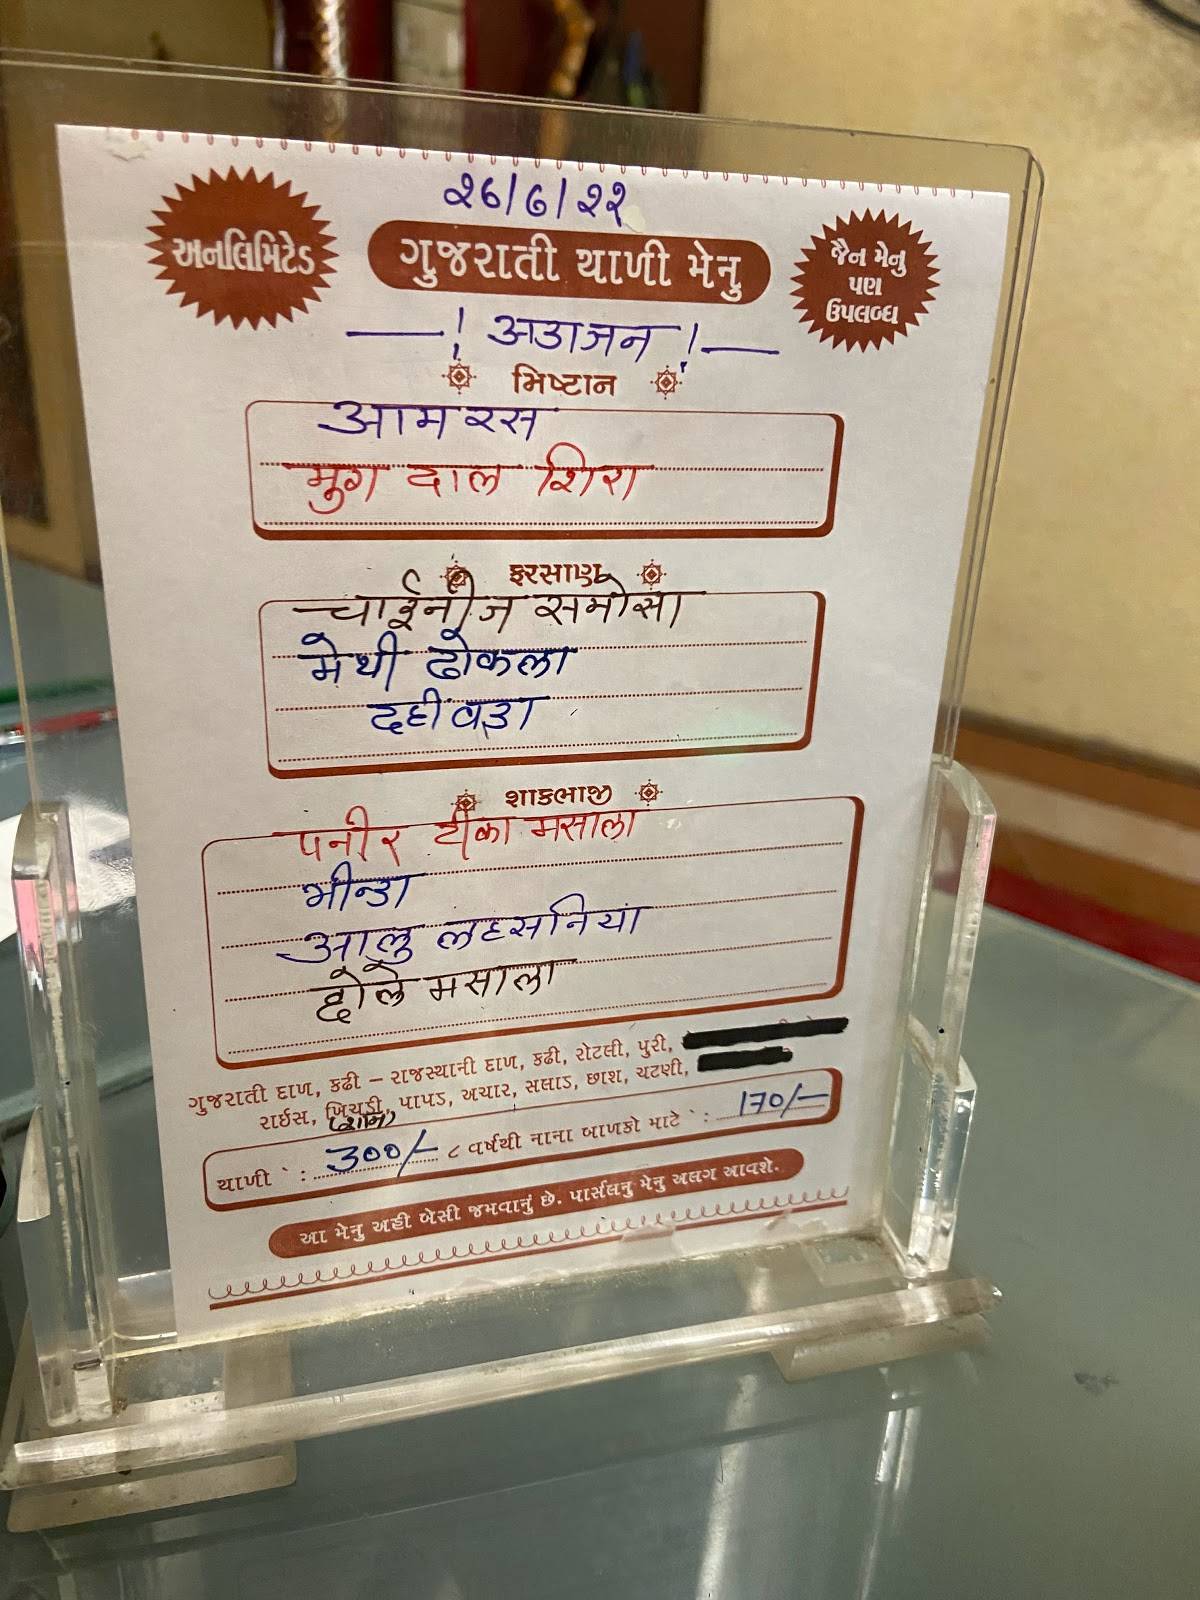 ૨૬/૭/૨૨
અનલિમિટેડ
ગુજરાતી થાળી મેનુ
જૈન મેનુ
પણ
ઉપલબ્ધ
! अडाजन !
મિષ્ટાન
आमरस
मुग दाल शिरा
ફરસાણ
चाईनीज समोसा
मेथी ढोकला
दहीवडा
શાકભાજી
पनीर टीका मसाला
भीन्डा
आलु लहसनिया
छोले मसाला
ગુજરાતી દાળ, કઢી – રાજસ્થાની દાળ, કઢી, રોટલી, પુરી,
રાઈસ, ખિચડી, પાપડ, અચાર, સલાડ, છાશ, ચટણી,
થાળી : 300/- ૮ વર્ષથી નાના બાળકો માટે : 170/-
આ મેનુ અહીં બેસી જમવાનું છે. પાર્સલનુ મેનુ અલગ આવશે.